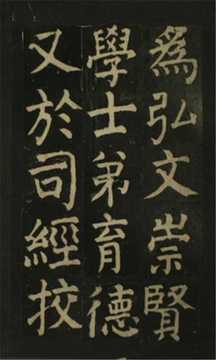 為弘文崇賢
學士弟育德
又於司經挍